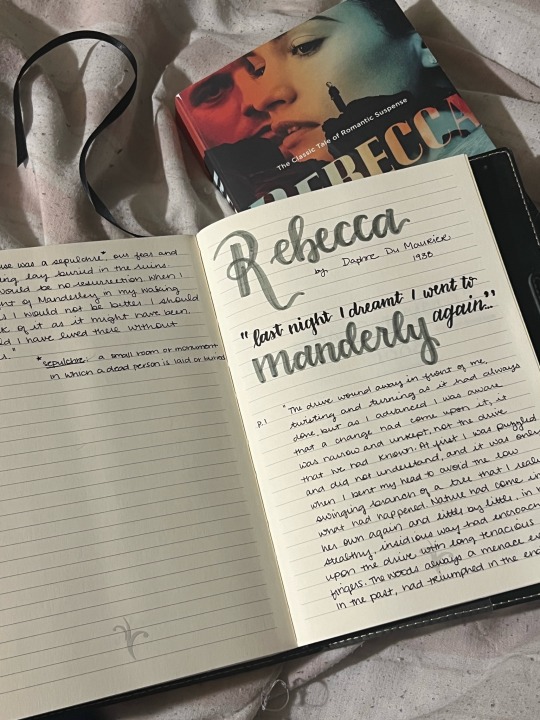 The Classic Tale of Romantic Suspense
REBECCA
use was a sepulchre*, our fear and
ing lay buried in the ruins.
would be no resurrection when I
ht of Manderley in my waking
s I would not be bitter. I should
k of it as it might have been,
d I have lived there without
."
*sepulchre: a small room or monument
in which a dead person is laid or buried
Rebecca
by Daphne Du Maurier,
1938
"last night I dreamt I went to
manderly again..."
p.1 "The drive wound away in front of me,
twisting and turning as it had always
done, but as I advanced I was aware
that a change had come upon it, it
was narrow and unkept, not the drive
that we had known. At first I was puzzled
and did not understand, and it was only
when I bent my head to avoid the low
swinging branch of a tree that I reali
what had happened. Nature had come in
her own again and little by little, in h
stealthy, insidious way had encroach
upon the drive with long tenacious
fingers. The woods always a menace ev
in the past, had triumphed in the end